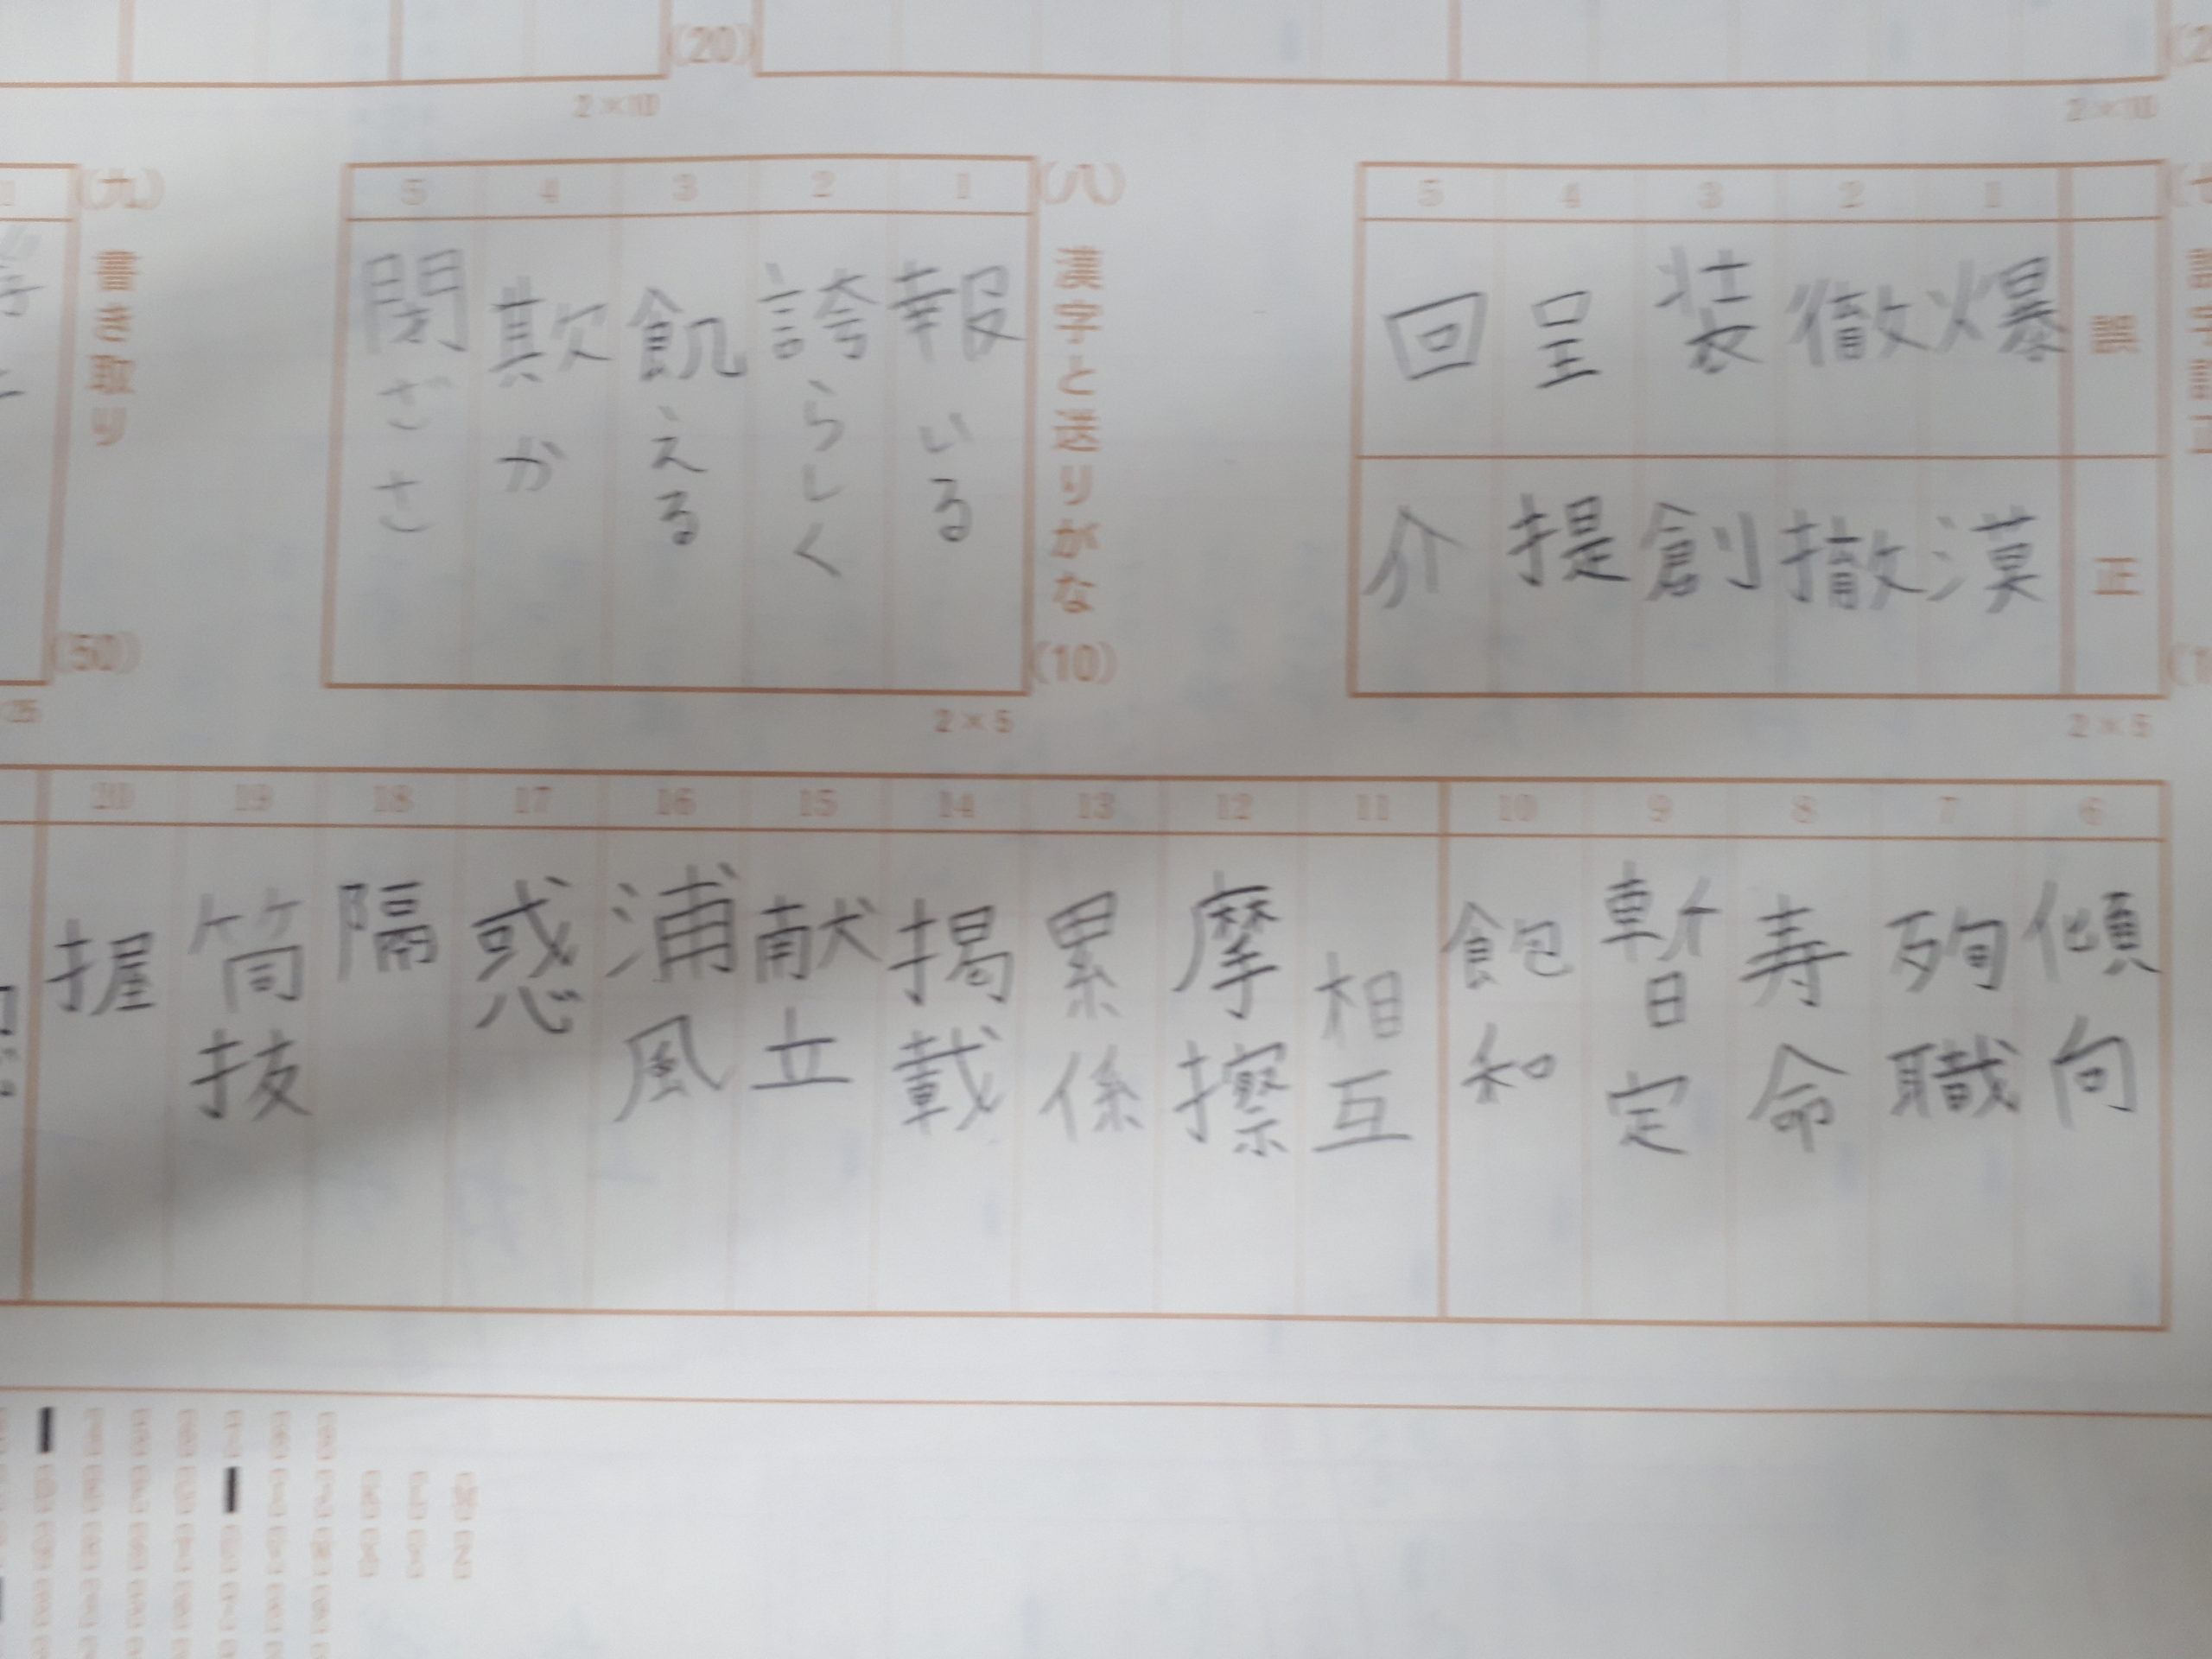 (20)
2×10
2×10
誤
正
1
爆
漠
2
徹
撤
3
装
創
4
呈
提
5
回
介
2×5
(八) 漢字と送りがな (10)
1
報いる
2
誇らしく
3
飢える
4
欺か
5
閉ざさ
2×5
(九) 書き取り (50)
6
傾向
7
殉職
8
寿命
9
暫定
10
飽和
11
相互
12
摩擦
13
累係
14
掲載
15
献立
16
浦風
17
惑
18
隔
19
筒技
20
握